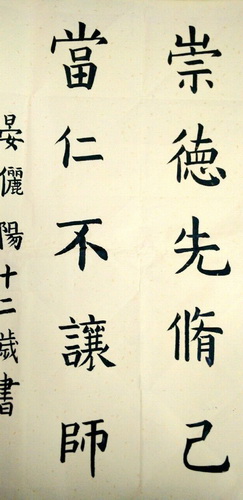 崇徳先脩己
當仁不讓師
晏儷陽十二歲書